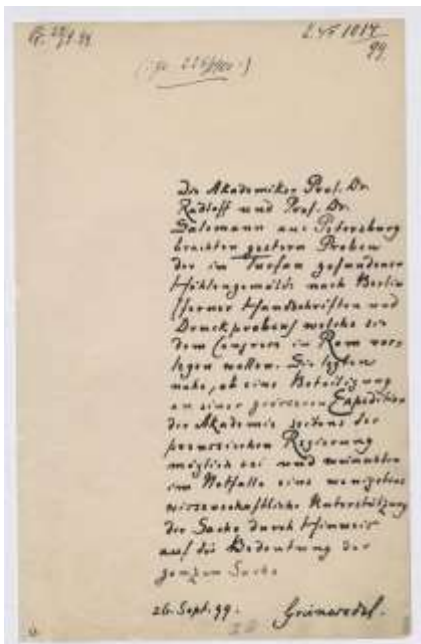 E. 1014
99.
Die Akademiker Prof. Dr.
Radloff und Prof. Dr.
Salemann aus Petersburg
brachten gestern Proben
der in Turfan gefundenen
Höhlengemälde nach Berlin
(ferner Handschriften und
Druckproben) welche sie
dem Congress in Rom vor-
legen wollen. Sie legten
nahe, ob eine Beteiligung
an einer grösseren Expedition
der Akademie seitens der
preussischen Regierung
möglich sei und wünschten
im Notfalle eine wenigstens
wissenschaftliche Unterstützung
der Sache durch Hinweis
auf die Bedeutung der
ganzen Sache
26. Sept. 99.
Grünwedel.